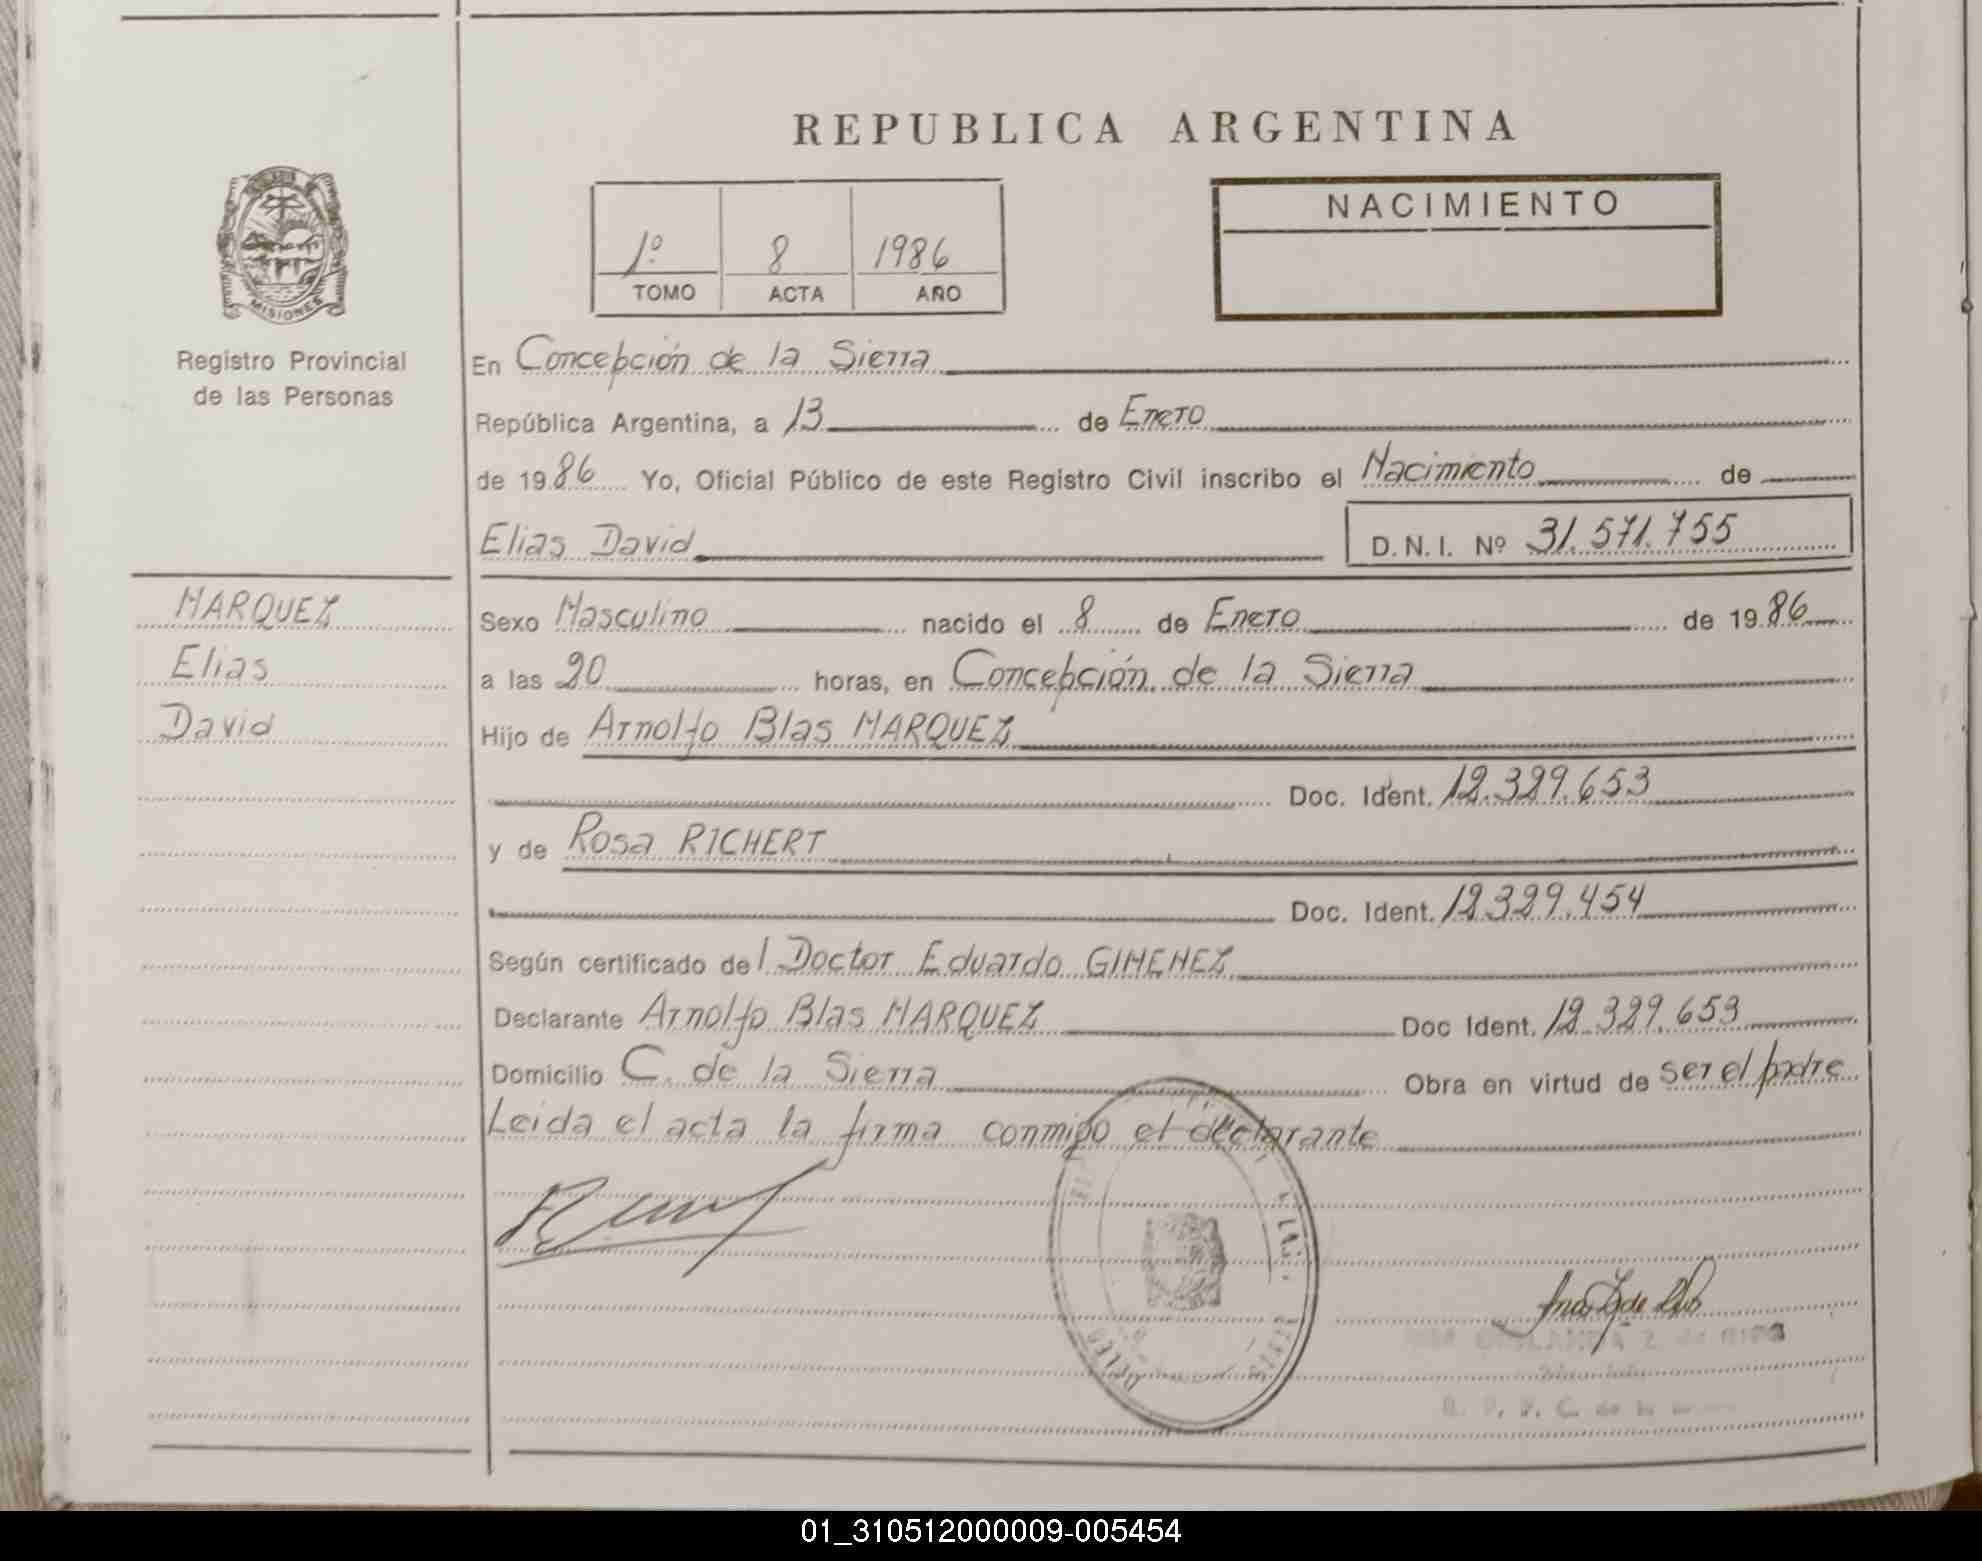 REPUBLICA ARGENTINA
MISIONES
Registro Provincial
de las Personas
1º 8 1986
TOMO ACTA AÑO
NACIMIENTO
En Concepción de la Sierra
República Argentina, a 13 de Enero
de 1986 Yo, Oficial Público de este Registro Civil inscribo el Nacimiento de
Elias David D.N.I. Nº 31.571.755
MARQUEZ
Elias
David
Sexo Masculino nacido el 8 de Enero de 1986
a las 20 horas, en Concepción de la Sierra
Hijo de Arnolfo Blas MARQUEZ
Doc. Ident. 12.329.653
y de Rosa RICHERT
Doc. Ident. 12.329.454
Según certificado del Doctor Eduardo GIMENEZ
Declarante Arnolfo Blas MARQUEZ Doc Ident. 12.329.653
Domicilio C. de la Sierra Obra en virtud de ser el padre
Leida el acta la firma conmigo el declarante
01_310512000009-005454